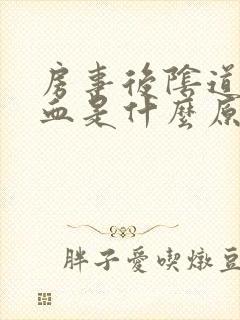 房事後陰道
血是什麼原
胖子愛喫燉豆